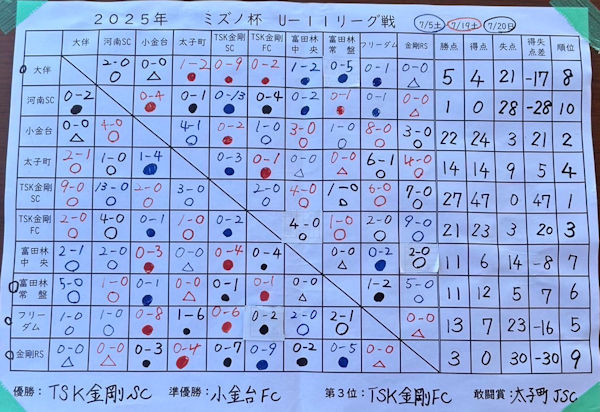 2025年 ミズノ杯 U-11リーグ戦 7/5(土) 7/19(土) 7/20(日)
大伴 河南SC 小金台 太子町 TSK金剛SC TSK金剛FC 富田林中央 富田林常盤 フリーダム 金剛RS 勝点 得点 失点 得失点差 順位
大伴 2-0 ○ 0-0 △ 1-2 ● 0-9 ● 0-2 ● 1-2 ● 0-5 ● 0-1 ● 0-0 △ 5 4 21 -17 8
河南SC 0-2 ● 0-4 ● 0-1 ● 0-13 ● 0-4 ● 0-2 ● 0-1 ● 0-1 ● 0-0 △ 1 0 28 -28 10
小金台 0-0 △ 4-0 ○ 4-1 ○ 0-2 ● 1-0 ○ 3-0 ○ 1-0 ○ 8-0 ○ 3-0 ○ 22 24 3 21 2
太子町 2-1 ○ 1-0 ○ 1-4 ● 0-3 ● 0-1 ● 0-0 △ 0-0 △ 6-1 ○ 4-0 ○ 14 14 9 5 4
TSK金剛SC 9-0 ○ 13-0 ○ 2-0 ○ 3-0 ○ 2-0 ○ 4-0 ○ 1-0 ○ 6-0 ○ 7-0 ○ 27 47 0 47 1
TSK金剛FC 2-0 ○ 4-0 ○ 0-1 ● 1-0 ○ 0-2 ● 4-0 ○ 1-0 ○ 2-0 ○ 9-0 ○ 21 23 3 20 3
富田林中央 2-1 ○ 2-0 ○ 0-3 ● 0-0 △ 0-4 ● 0-4 ● 0-0 △ 0-2 ● 2-0 ○ 11 6 14 -8 7
富田林常盤 5-0 ○ 1-0 ○ 0-1 ● 0-0 △ 0-1 ● 0-1 ● 0-0 △ 1-2 ● 5-0 ○ 11 12 5 7 6
フリーダム 1-0 ○ 1-0 ○ 0-8 ● 1-6 ● 0-6 ● 0-2 ● 2-0 ○ 2-1 ○ 0-0 △ 13 7 23 -16 5
金剛RS 0-0 △ 0-0 △ 0-3 ● 0-4 ● 0-7 ● 0-9 ● 0-2 ● 0-5 ● 0-0 △ 3 0 30 -30 9
優勝: TSK金剛SC 準優勝: 小金台FC 第3位: TSK金剛FC 敢闘賞: 太子町JSC